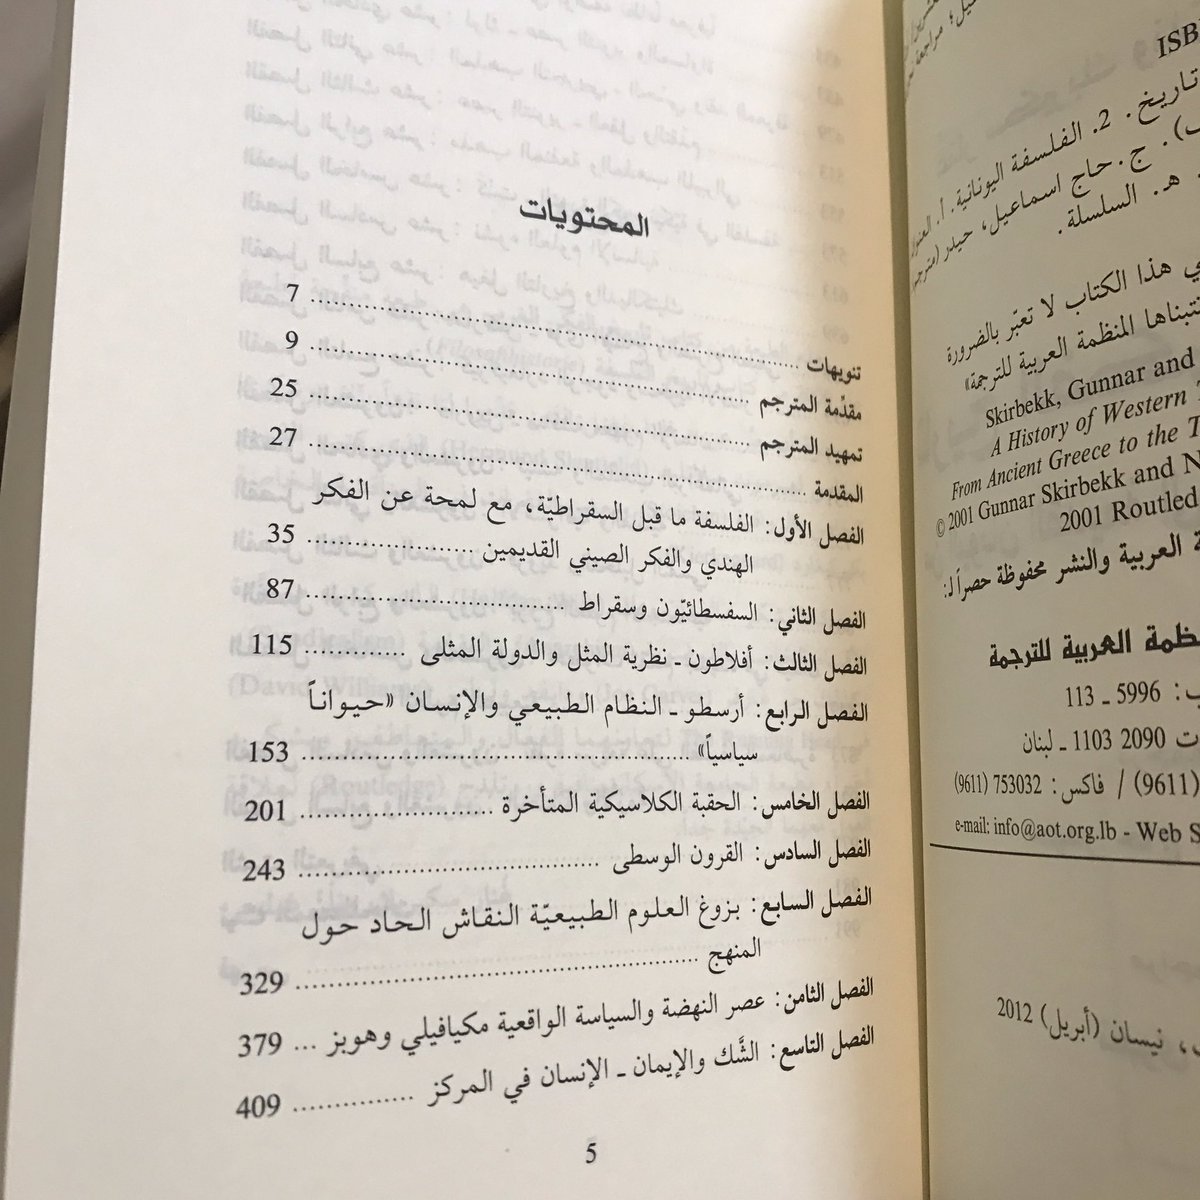 المحتويات
تنويهات ........ 7
مقدّمة المترجم ........ 9
تمهيد المترجم ........ 25
المقدمة ........ 27
الفصل الأول: الفلسفة ما قبل السقراطيّة، مع لمحة عن الفكر
الهندي والفكر الصيني القديمين ........ 35
الفصل الثاني: السفسطائيّون وسقراط ........ 87
الفصل الثالث: أفلاطون ـ نظرية المثل والدولة المثلى ........ 115
الفصل الرابع: أرسطو ـ النظام الطبيعي والإنسان «حيواناً
سياسياً» ........ 153
الفصل الخامس: الحقبة الكلاسيكية المتأخرة ........ 201
الفصل السادس: القرون الوسطى ........ 243
الفصل السابع: بزوغ العلوم الطبيعيّة النقاش الحاد حول
المنهج ........ 329
الفصل الثامن: عصر النهضة والسياسة الواقعية مكيافيلي وهوبز ... 379
الفصل التاسع: الشَّك والإيمان ـ الإنسان في المركز ........ 409
5
ISB
تاريخ. 2. الفلسفة اليونانية. أ. العنوان
ج. حاج اسماعيل، حيدر (مترجم)
هـ. السلسلة.
هذا الكتاب لا تعبّر بالضرورة
تتبناها المنظمة العربية للترجمة»
Skirbekk, Gunnar and
A History of Western T
From Ancient Greece to the T
© 2001 Gunnar Skirbekk and N
2001 Routled
العربية والنشر محفوظة حصراً لـ:
ظمة العربية للترجمة
ب: 5996 ـ 113
ت 2090 1103 ـ لبنان
(9611) / فاكس: 753032 (9611)
e-mail: info@aot.org.lb - Web S
نيسان (أبريل) 2012